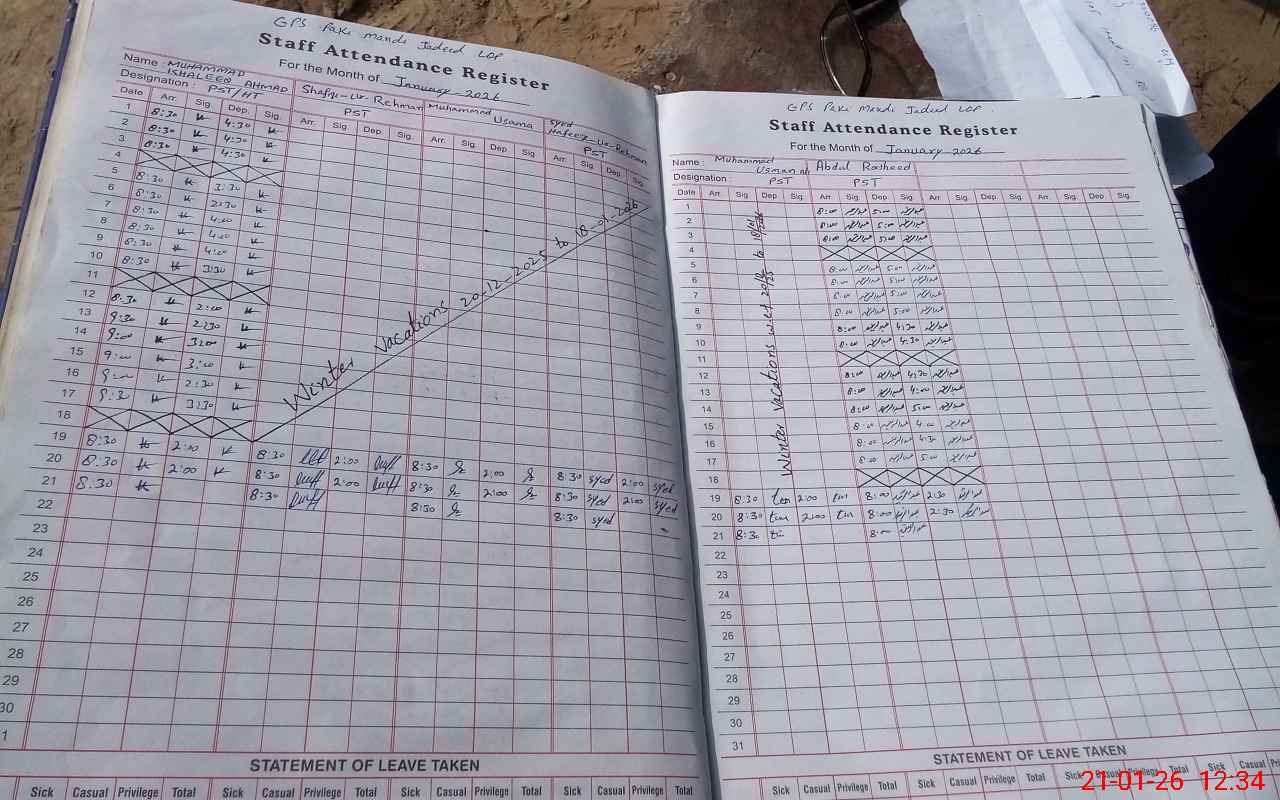 GPS Paki Mandi Jadeed LOP
Staff Attendance Register
For the Month of January-2026
Name : MUHAMMAD ISHALEEQ AHMAD Shafiq-Ur-Rehman Muhammad Usama Syed Hafeez-Ur-Rehman
Designation : PST/HT PST PST
Date Arr. Sig. Dep. Sig. Arr. Sig. Dep. Sig. Arr. Sig. Dep. Sig. Arr. Sig. Dep. Sig.
1 8:30 4:30
2 8:30 4:30
3 8:30 4:30
4
5 8:30 3:30
6 8:30 2:30
7 8:30 4:00
8 8:30 4:00
9 8:30 4:00
10 8:30 3:30
11
12 8:30 2:00
13 9:30 2:30
14 9:00 3:00
15 9:00 3:00
16 2:30
17 3:30
18
Winter Vacations 20-12-2025 to 18-01-2026
19 8:30 2:00 8:30 2:00 8:30 2:00 8:30 syed 2:00 syed
20 8:30 2:00 8:30 2:00 8:30 2:00 8:30 syed 2:00 syed
21 8:30 8:30 8:30 8:30 syed
22
23
24
25
26
27
28
29
30
1
STATEMENT OF LEAVE TAKEN
Sick Casual Privilege Total Sick Casual Privilege Total Sick Casual Privilege Total Sick Casual Privilege Total
GPS Paki Mandi Jadeed LOP
Staff Attendance Register
For the Month of January-2026
Name : Muhammad Usman Abdul Rasheed
Designation : PST PST
Date Arr. Sig. Dep. Sig. Arr. Sig. Dep. Sig. Arr. Sig. Dep. Sig. Arr. Sig. Dep. Sig.
1 8:00 5:00
2 8:00 5:00
3 8:00 5:00
4
5 8:00 5:00
6 8:00 5:00
7 8:00 5:00
8 8:00 5:00
9 8:00 4:30
10 8:00 4:30
11
12 8:00 4:30
13 8:00 4:00
14 8:00 5:00
15 8:00 4:00
16 8:00 4:30
17 8:00 5:00
18
Winter Vacations
19 8:30 2:00 8:00 2:30
20 8:30 2:00 8:00 2:30
21 8:30 8:00
22
23
24
25
26
27
28
29
30
31
STATEMENT OF LEAVE TAKEN
Sick Casual Privilege Total Sick Casual Privilege Total Sick Casual Privilege Total Sick Casual Privilege
21-01-26 12:34